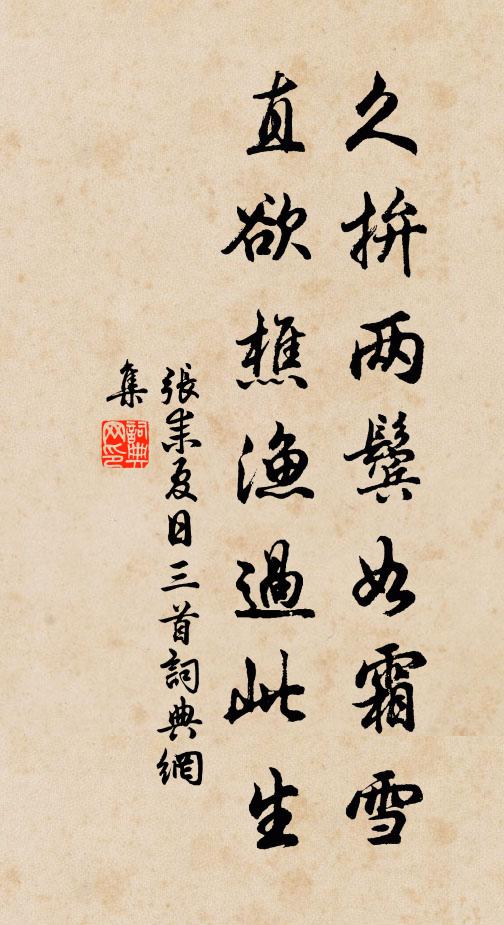 久拚两鬓如霜雪
直欲樵渔過此生
張耒夏日三首詞典網
集
詞典
网印